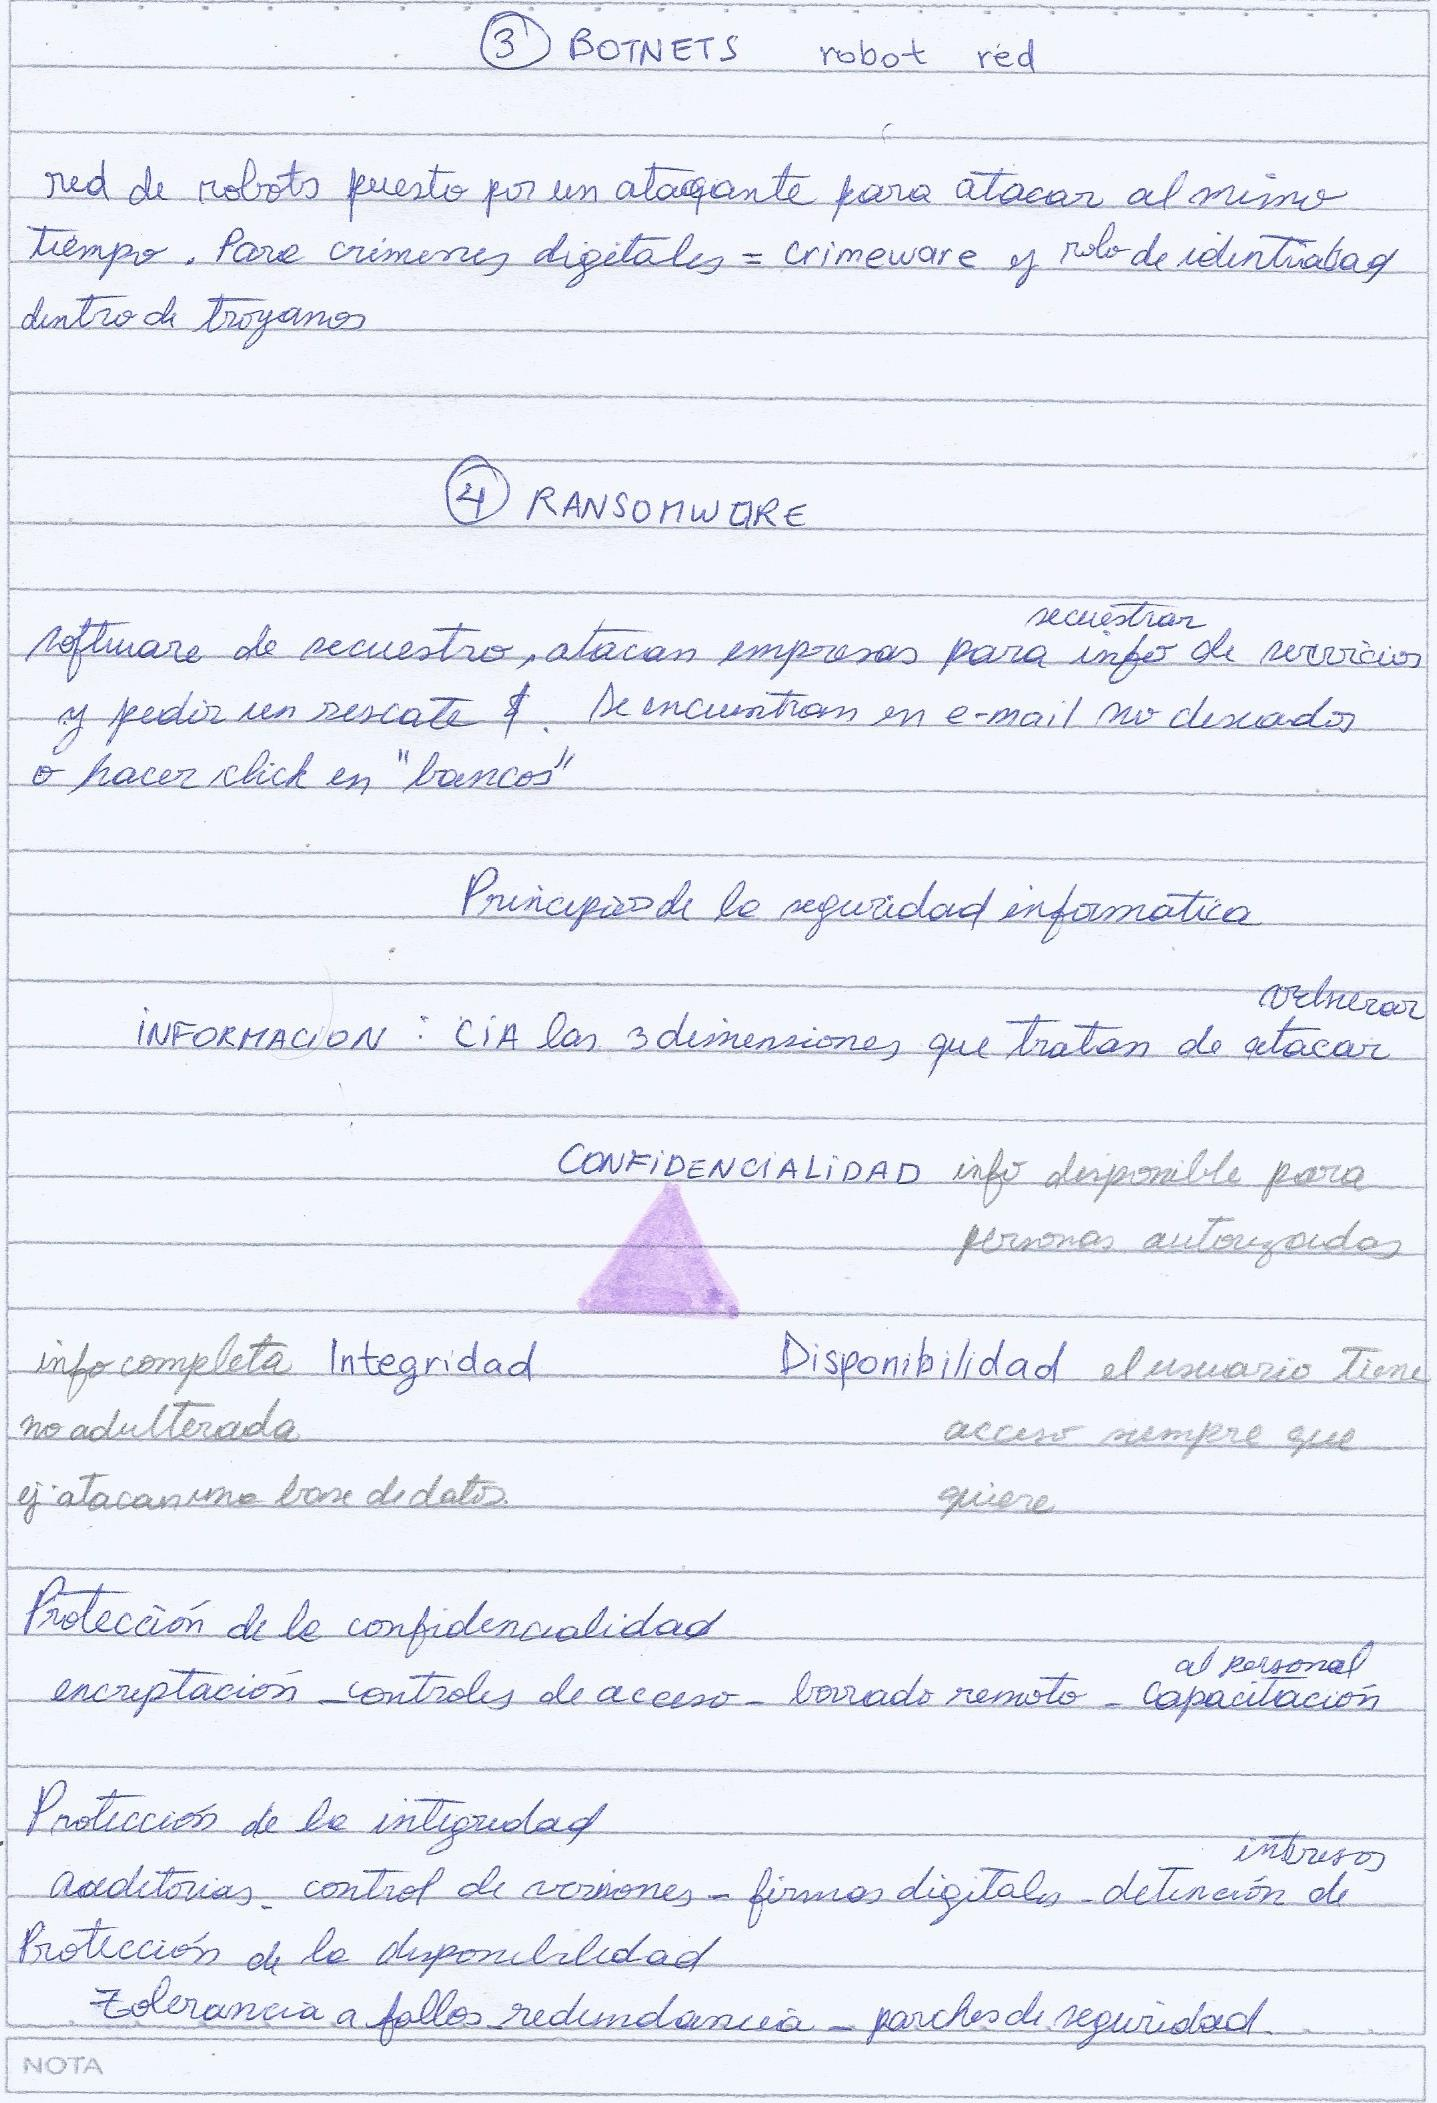 ③ BOTNETS robot red
red de robots puesto por un atacante para atacar al mismo
tiempo. Para crimenes digitales = crimeware y robo de identidad
dentro de troyanos
④ RANSOMWARE
secuestrar
software de secuestro, atacan empresas para info de servicios
y pedir un rescate $. Se encuentran en e-mail no deseados
o hacer click en "bancos"
Principios de la seguridad informática
vulnerar
INFORMACION : CIA las 3 dimensiones que tratan de atacar
CONFIDENCIALIDAD info disponible para
personas autorizadas
info completa Integridad Disponibilidad el usuario tiene
no adulterada acceso siempre que
ej. atacan una base de datos. quiere
Protección de la confidencialidad
al personal
encriptación - controles de acceso - borrado remoto - Capacitación
Protección de la integridad
intrusos
auditorias - control de versiones - firmas digitales - detención de
Protección de la disponibilidad
Tolerancia a fallos - redundancia - parches de seguridad.
NOTA